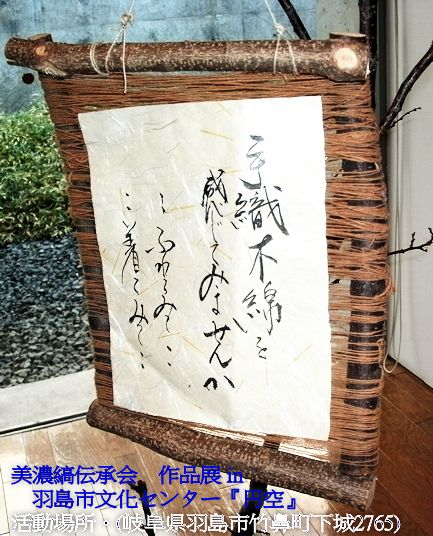 手織木綿を
感じてみませんか
…ふれてみて…
…着てみて…
美濃縞伝承会　作品展 in
羽島市文化センター『円空』
活動場所・(岐阜県羽島市竹鼻町下城2765)